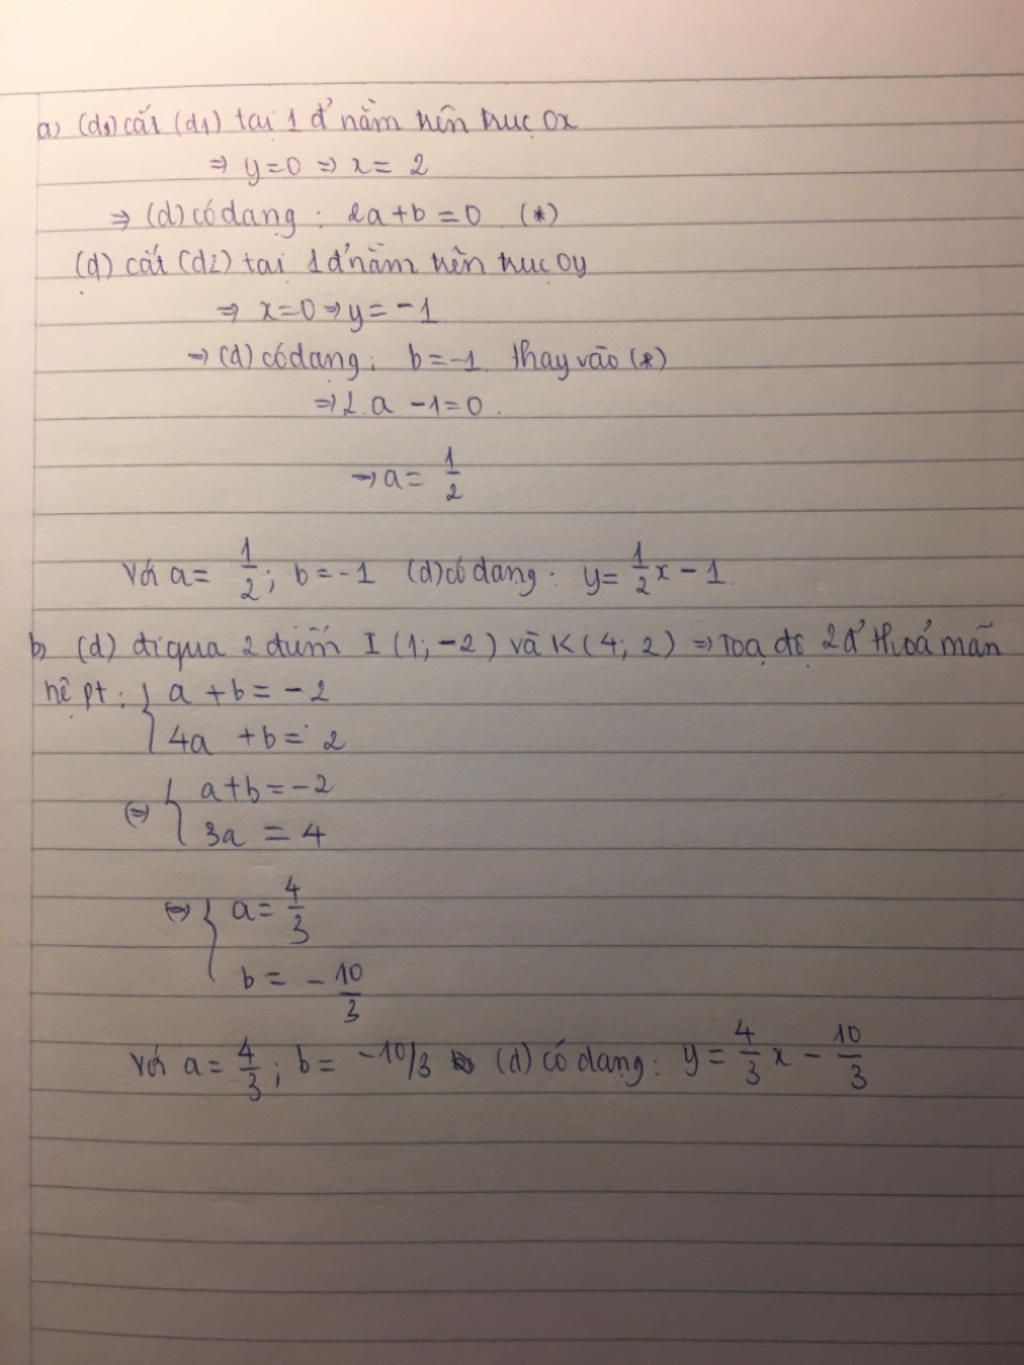 a) (d) cắt (d1) tại 1 đ' nằm trên trục Ox
⇒ y=0 ⇒ x= 2
⇒ (d) có dạng : 2a+b=0 (*)
(d) cắt (d2) tại 1 đ' nằm trên trục Oy
⇒ x=0 ⇒ y= -1
→ (d) có dạng : b=-1. thay vào (*)
⇒ 2.a -1=0.
→ a= 1/2
Với a= 1/2; b=-1 (d) có dạng : y= 1/2 x - 1.
b, (d) đi qua 2 điểm I (1; -2) và K (4; 2) ⇒ Toạ độ 2 đ' thoả mãn
hệ pt : { a +b = -2
4a +b = 2
⇔ { a+b=-2
3a = 4
⇔ { a= 4/3
b = - 10/3
Với a= 4/3; b= -10/3 (d) có dạng : y= 4/3 x - 10/3